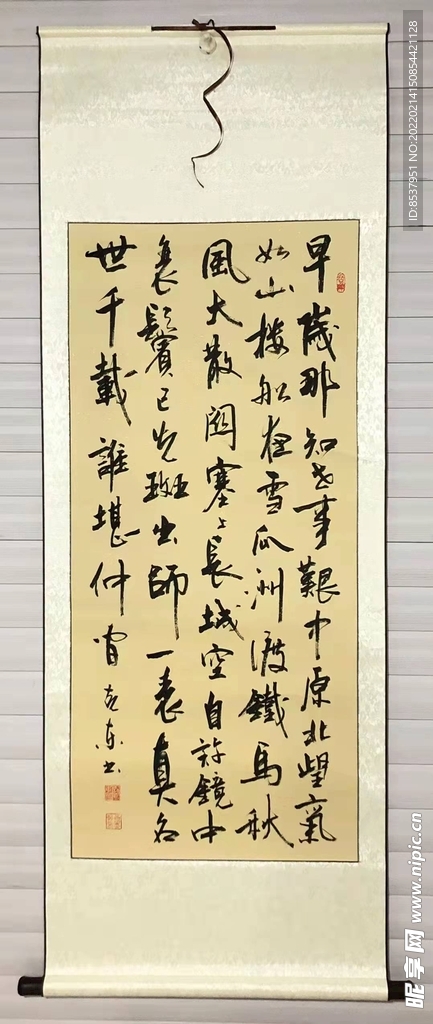 早歲那知世事艱中原北望氣
如山樓船夜雪瓜洲渡鐵馬秋
風大散関塞上長城空自許鏡中
衰鬢已先斑出師一表真名
世千載誰堪仲間
ID:8537951 NO:20220214150854421128
昵享网 www.nipic.cn